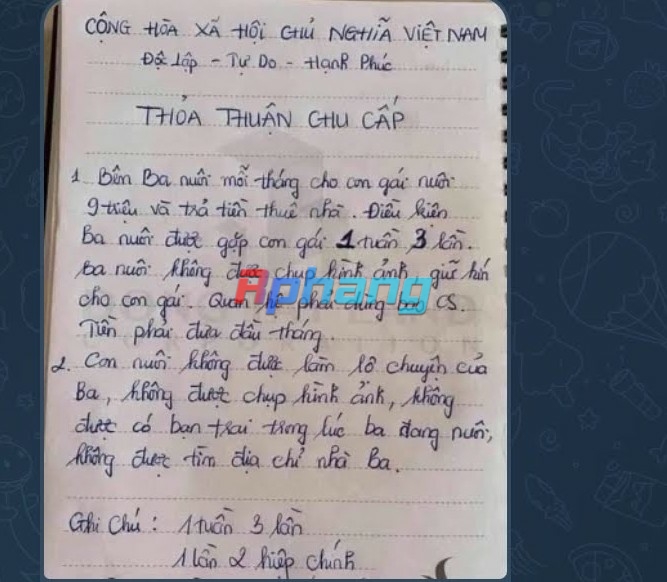 CỘNG HÒA XÃ HỘI CHỦ NGHĨA VIỆT NAM
Độc lập - Tự Do - Hạnh Phúc
THỎA THUẬN CHU CẤP
1 Bên Ba nuôi mỗi tháng cho con gái nuôi
9 triệu và trả tiền thuê nhà. Điều kiện
Ba nuôi được gặp con gái 1 tuần 3 lần.
Ba nuôi không được chụp hình ảnh, giữ kín
cho con gái. Quan hệ phải dùng bao CS.
Rphang
Tiền phải đưa đầu tháng
2. Con nuôi không được làm lộ chuyện của
Ba, không được chụp hình ảnh, không
được có bạn trai trong lúc ba đang nuôi,
không được tìm địa chỉ nhà Ba.
Ghi Chú : 1 tuần 3 lần
1 lần 2 hiệp chính